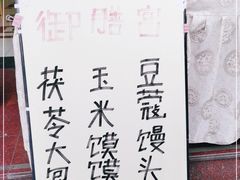 御膳宫
豆蔻馒头
玉米馍馍
茯苓大